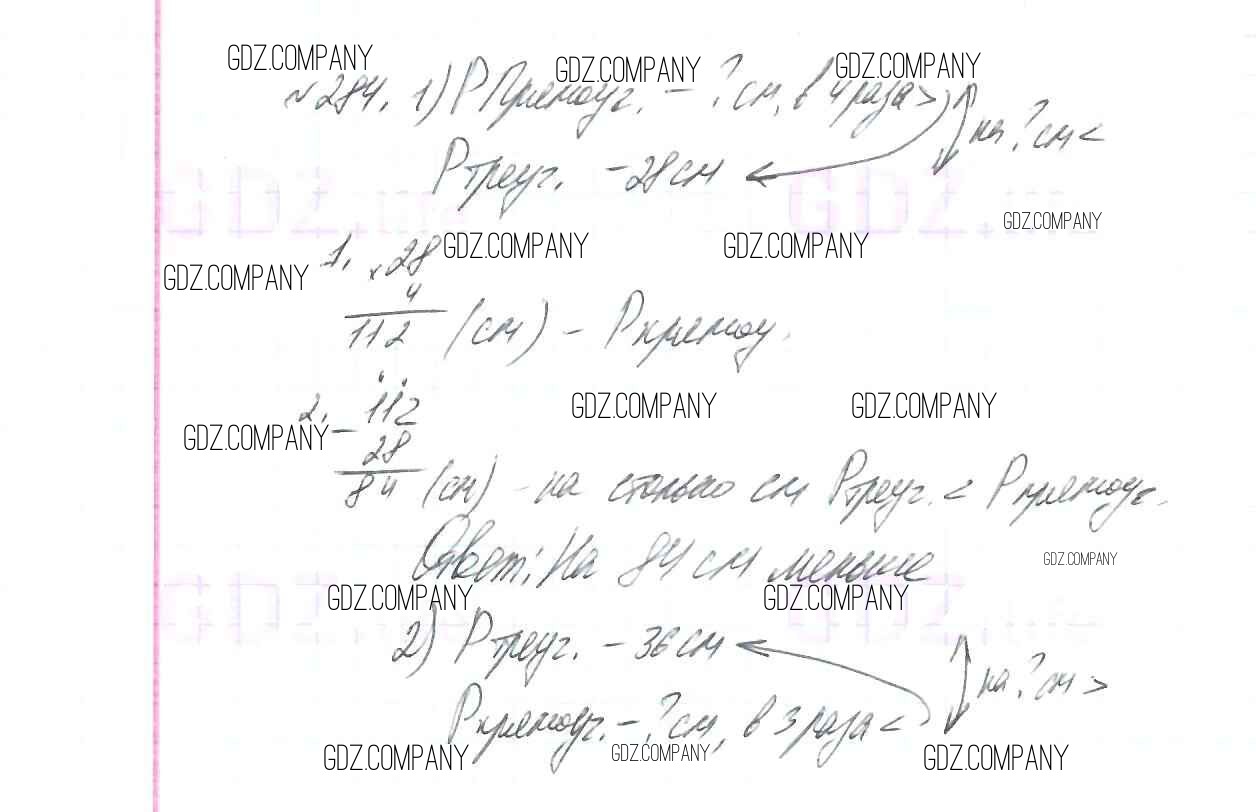 GDZ.COMPANY GDZ.COMPANY GDZ.COMPANY
№284. 1) Р Прямоуг. – ? см, в 4 раза > на ? см <
Pтреуг. – 28 см
GDZ.COMPANY
GDZ.COMPANY GDZ.COMPANY
1. ×28
GDZ.COMPANY
4
112 (см) – Pпрямоу.
GDZ.COMPANY GDZ.COMPANY
2. – 112
GDZ.COMPANY
28
84 (см) – на столько см Pтреуг. < Pпрямоуг.
Ответ: На 84 см меньше
GDZ.COMPANY
GDZ.COMPANY GDZ.COMPANY
2) Pтреуг. – 36 см
на ? см >
Pпрямоуг. – ? см, в 3 раза <
GDZ.COMPANY GDZ.COMPANY GDZ.COMPANY